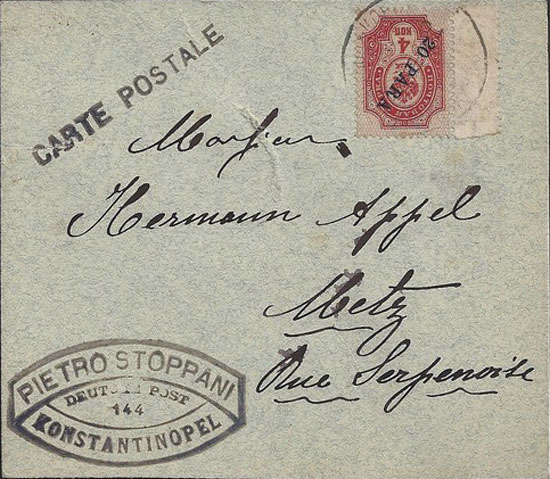 CARTE POSTALE
4 КОП
20 PARA
ПОЧТОВАЯ МАРКА
Monsieur
Hermann Appel
Metz
Rue Serpenoise
PIETRO STOPPANI
DEUTSCHE POST
144
KONSTANTINOPEL